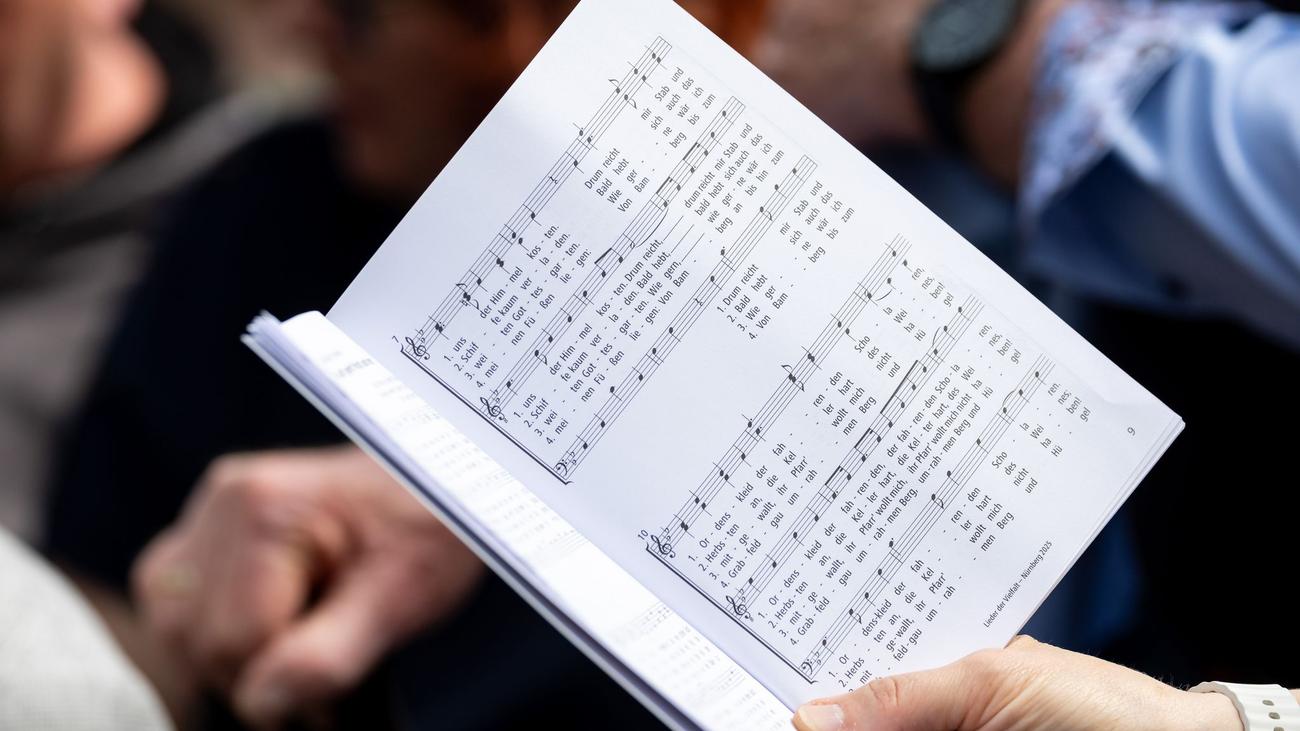 7
1. uns der Him - mel kos - ten. Drum reicht mir Stab und
2. Schif - fe kaum ver - la - den. Bald hebt sich auch das
3. wei - ten Got - tes - gar - ten. Wie ger - ne wär ich
4. mei - nen Fü - ßen lie - gen: Von Bam - berg bis zum
1. uns der Him - mel kos - ten. Drum reicht, drum reicht mir Stab und
2. Schif - fe kaum ver - la - den. Bald hebt, bald hebt sich auch das
3. wei - ten Got - tes - gar - ten. Wie gern, wie ger - ne wär ich
4. mei - nen Fü - ßen lie - gen: Von Bam - berg an bis hin zum
1. Drum reicht mir Stab und
2. Bald hebt sich auch das
3. Wie ger - ne wär ich
4. Von Bam - berg bis zum
10
1. Or - dens - kleid der fah - ren - den Scho - la - ren,
2. Herbs - ten an, die Kel - ler hart des Wei - nes,
3. mit - ge - wallt, ihr Pfarr' wollt mich nicht ha - ben!
4. Grab - feld - gau um - rah - men Berg und Hü - gel
1. Or - dens - kleid der fah - ren - den, der fah - ren - den Scho - la - ren,
2. Herbs - ten an, die Kel - ler hart, die Kel - ter hart, des Wei - nes,
3. mit - ge - wallt, ihr Pfarr' wollt mich, ihr Pfarr' wollt mich nicht ha - ben!
4. Grab - feld - gau um - rah - men Berg, um - rah - men Berg und Hü - gel
1. Or - dens - kleid der fah - ren - den Scho - la - ren,
2. Herbs - ten an, die Kel - ler hart des Wei - nes,
3. mit - ge - wallt, ihr Pfarr' wollt mich nicht ha - ben!
feld - gau um - rah - men Berg und Hü - gel
Lieder der Vielfalt – Nürnberg 2025
9